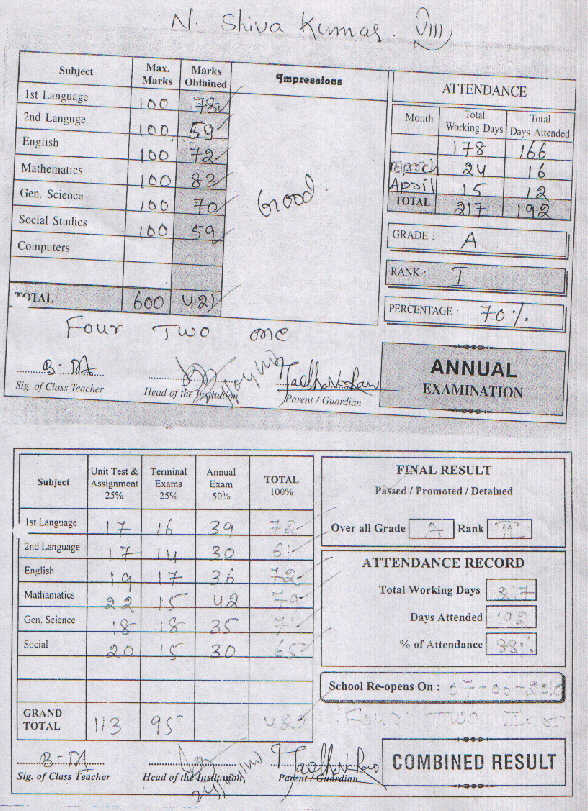 N. Shiva Kumar. VIII
Subject Max. Marks Marks Obtained Impressions
1st Language 100 78
2nd Languge 100 59
English 100 72
Mathematics 100 83
Gen. Science 100 70
Social Studies 100 59
Computers
TOTAL 600 421
Good
Four Two one
Sig. of Class Teacher Head of the Institution Parent / Guardian
ATTENDANCE
Month Total Working Days Total Days Attended
178 166
March 24 16
April 15 12
TOTAL 217 192
GRADE : A
RANK : I
PERCENTAGE : 70%
ANNUAL
EXAMINATION
Subject Unit Test & Assignment 25% Terminal Exams 25% Annual Exam 50% TOTAL 100%
1st Language 17 16 39 72
2nd Language 17 14 30 61
English 19 17 36 72
Mathamatics 22 15 42 79
Gen. Science 18 18 35 71
Social 20 15 30 65
GRAND TOTAL 113 95
Sig. of Class Teacher Head of the Institution Parent / Guardian
FINAL RESULT
Passed / Promoted / Detained
Over all Grade Rank
ATTENDANCE RECORD
Total Working Days 217
Days Attended 192
% of Attendance 88%
School Re-opens On :
Four Two
COMBINED RESULT